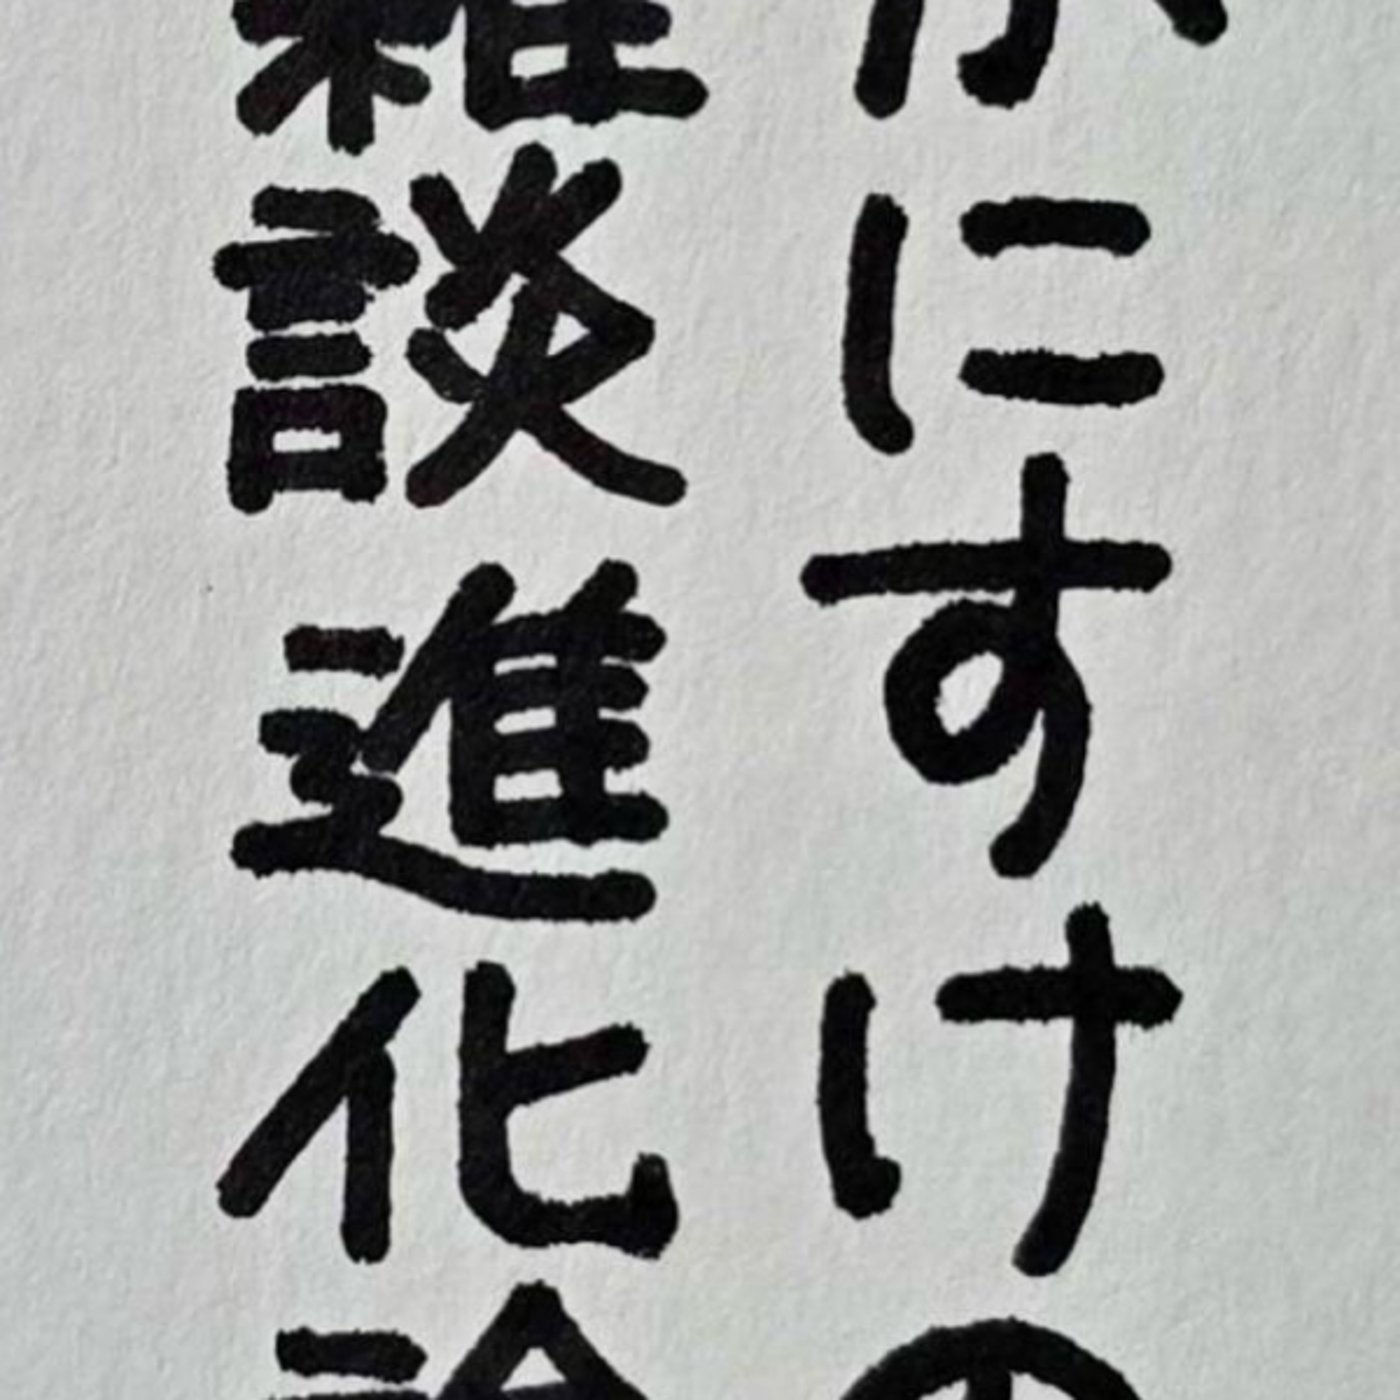 かにすけの
雑談進化論